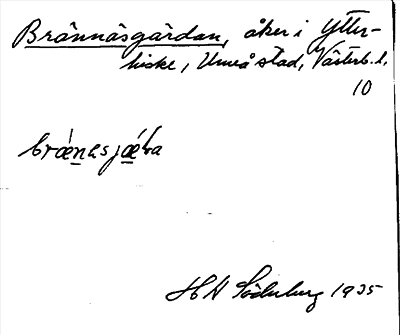 Brännäsgärdan, åker i Ytter-
hiske, Umeå stad, Västerb. l.
10
H A Söderberg 1935